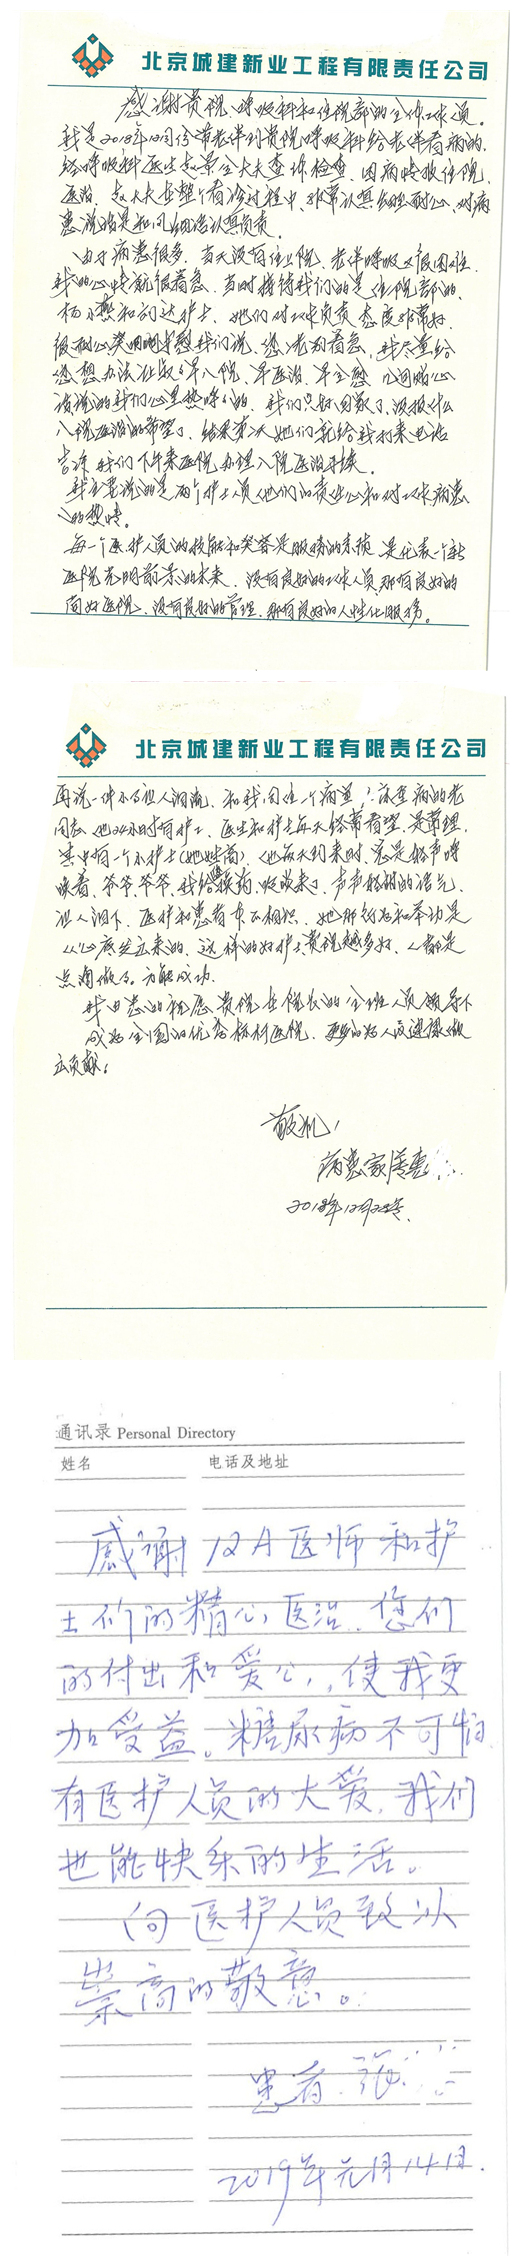 北京城建新业工程有限责任公司
感谢贵院呼吸科和住院部的全体工作人员。
我是2018年12月份带老伴到贵院呼吸科给老伴看病的.
经呼吸科医生赵景全大夫查体检查、因病情收住院
医治、赵大夫在整个看诊过程中、非常认真细心耐心、对病
患说话是和风细语认真负责。
由于病患很多、当天没有住上院、老伴呼吸又很困难、
我的心情就很着急、当时接待我们的是住院部的、
护士、她们对工作负责态度非常好、
很耐心笑眯眯我们说、您老别着急、我尽量给
您想办法让早入院、早医治、早全愈、几句贴心
话说的我们心里热呼呼的、我们只好回家了、没报什么
入院医治的希望了、结果第二天她们就给我打来电话
告诉我们下午来医院办理入院医治手续。
我主要说的是两个护士人员她们的责任心和对工作、病患
的热情。
每一个医护人员的技能和笑容是服务的 是代表一个
医院光明前景的未来、没有良好的工作人员、那有良好的
医院、没有良好的管理、那有良好的人性化服务。
北京城建新业工程有限责任公司
再说一件小事让人泪流、和我同住一个病道 床重病的老
同志、他24小时有护工、医生和护士每天经常看望、是常理.
其中有一个小护士(她姓商)、她每天到来时、总是轻声呼
唤着、爷爷、爷爷、我给换药、声声的语气、
让人泪下、医护和患者本不相识、她那行为和举动是
从心底发出来的、这样的好护士贵院越多好、人都是
点滴做了、方能成功.
我由衷的祝愿贵院在院长的全班人员领导下
成为全国的优秀标杆医院、更好的为人民健康做
出贡献.
敬礼!
病患家属
2018年12月28号.
通讯录 Personal Directory
姓名 电话及地址
感谢12月医师和护
士们的精心医治、您们
的付出和爱心,使我更
加受益。糖尿病不可怕
有医护人员的大爱,我们
也能快乐的生活。
向医护人员致以
崇高的敬意。
患者:张
2019年元月14日.